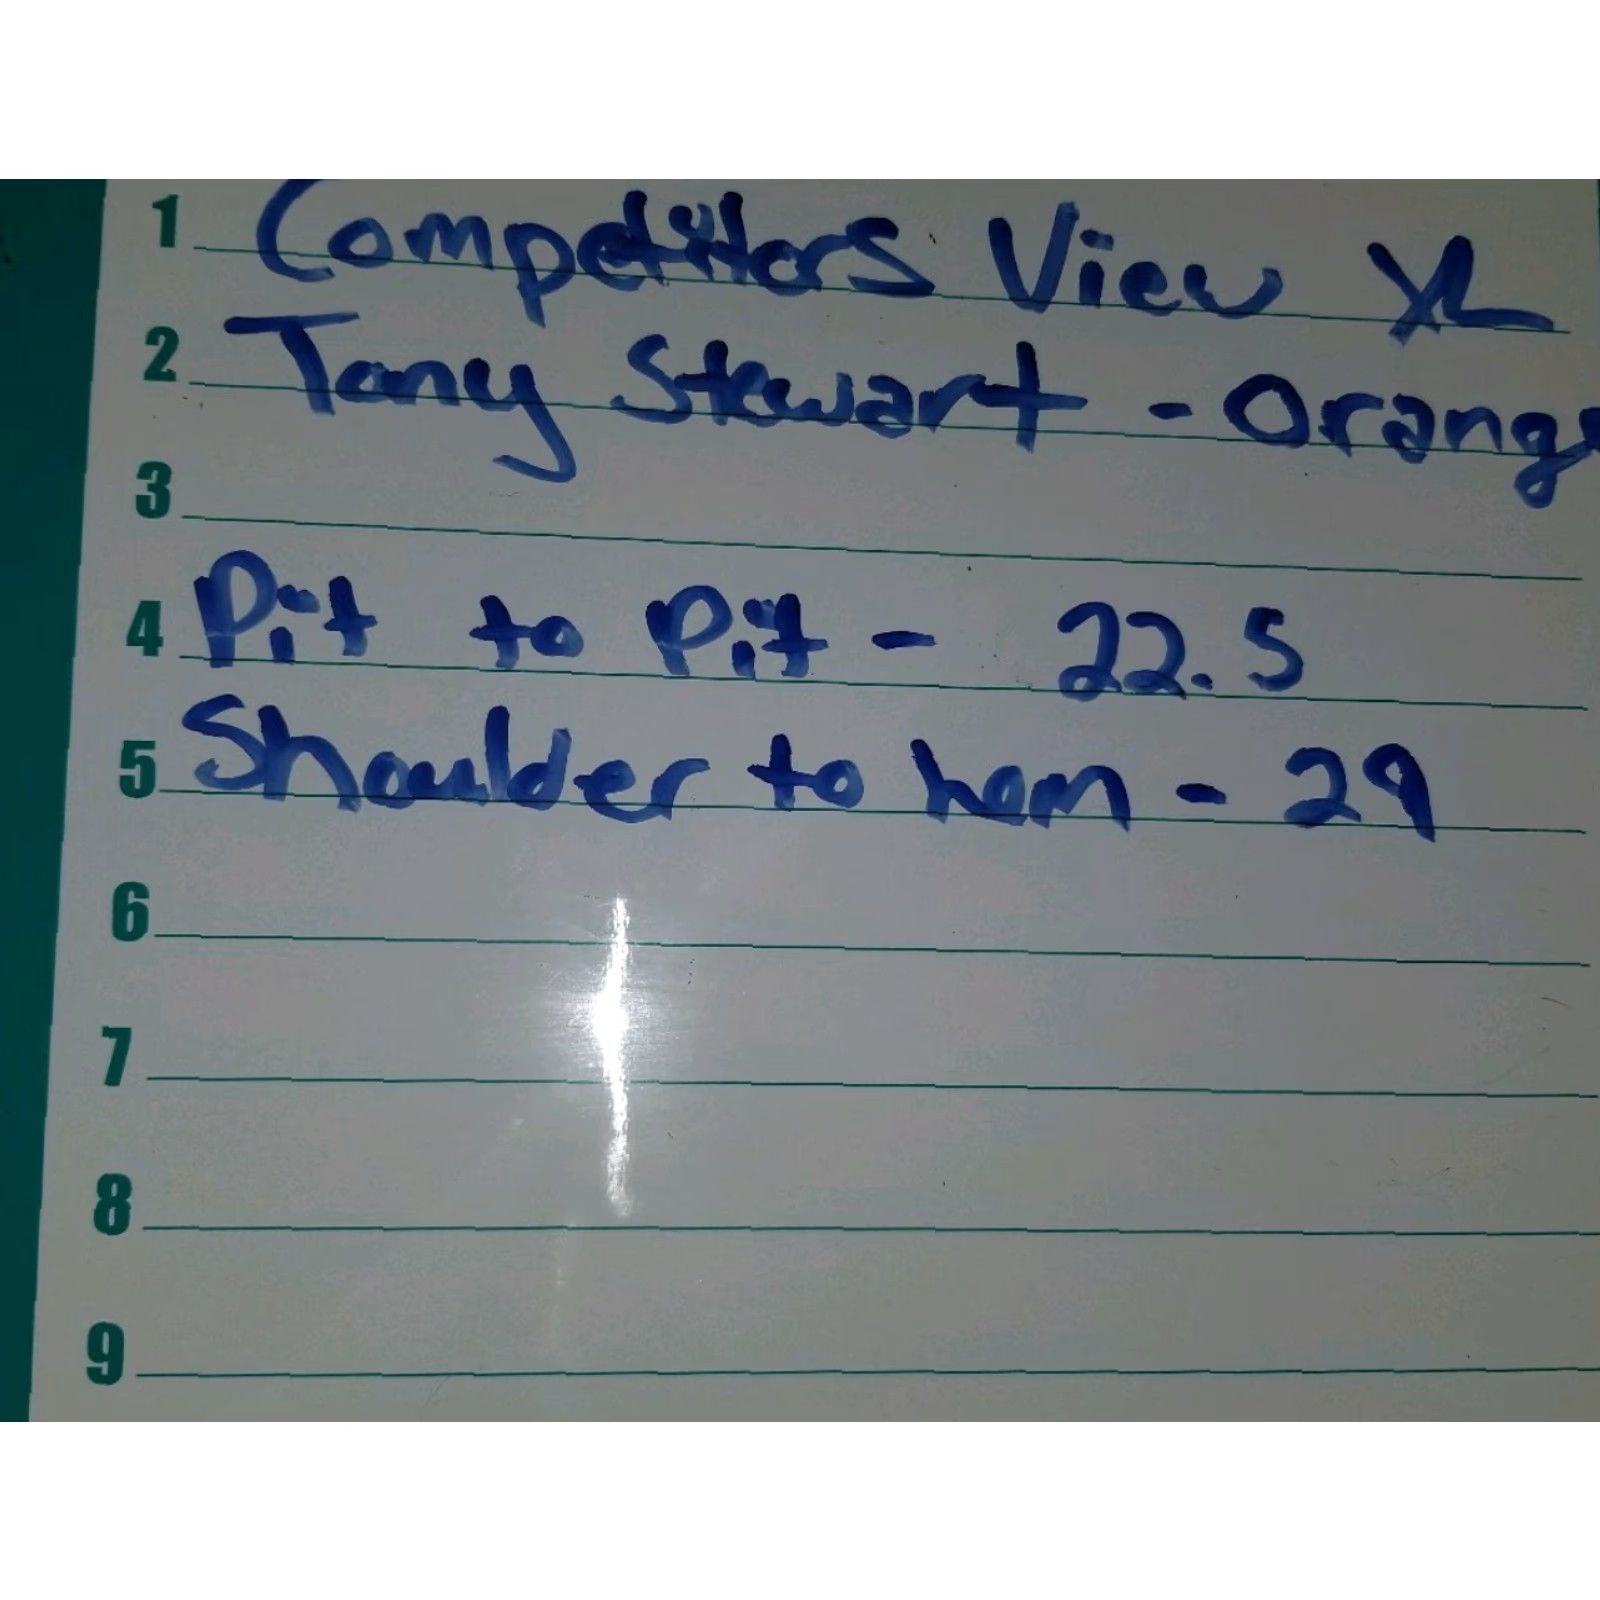 1 Competitors View XL
2 Tony Stewart - Orange
3
4 Pit to Pit - 22.5
5 Shoulder to hem - 29
6
7
8
9